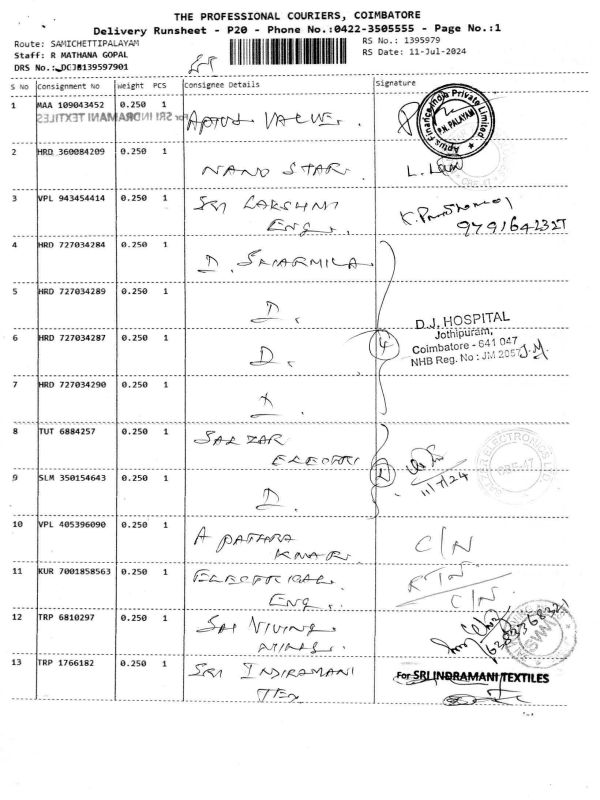 THE PROFESSIONAL COURIERS, COIMBATORE
Delivery Runsheet - P20 - Phone No.:0422-3505555 - Page No.:1
Route: SAMICHETTIPALAYAM
RS No.: 1395979
Staff: R MATHANA GOPAL
RS Date: 11-Jul-2024
DRS No.: DCJB139597901
S No Consignment No Weight PCS Consignee Details Signature
1 MAA 109043452 0.250 1
For SRI INDRAMANI TEXTILES
Aptus Finance India Private Limited
P.N. PALAYAM
2 HRD 360084209 0.250 1 NANO STAR.
3 VPL 943454414 0.250 1 SRI LAKSHMI
ENG.
9791642327
4 HRD 727034284 0.250 1 D. SHARMILA
5 HRD 727034289 0.250 1 D.
6 HRD 727034287 0.250 1 D. 4
D.J. HOSPITAL
Jothipuram,
Coimbatore - 641 047
NHB Reg. No : JM 2057
J.M
7 HRD 727034290 0.250 1
8 TUT 6884257 0.250 1 SALZAR
ELECTRI
11/7/24
9 SLM 350154643 0.250 1 D.
10 VPL 405396090 0.250 1 C/N
11 KUR 7001858563 0.250 1 ELECTRICAL
ENG. C/N
12 TRP 6810297 0.250 1 SRI
13 TRP 1766182 0.250 1 SRI INDIRAMANI
TEX
For SRI INDRAMANI TEXTILES